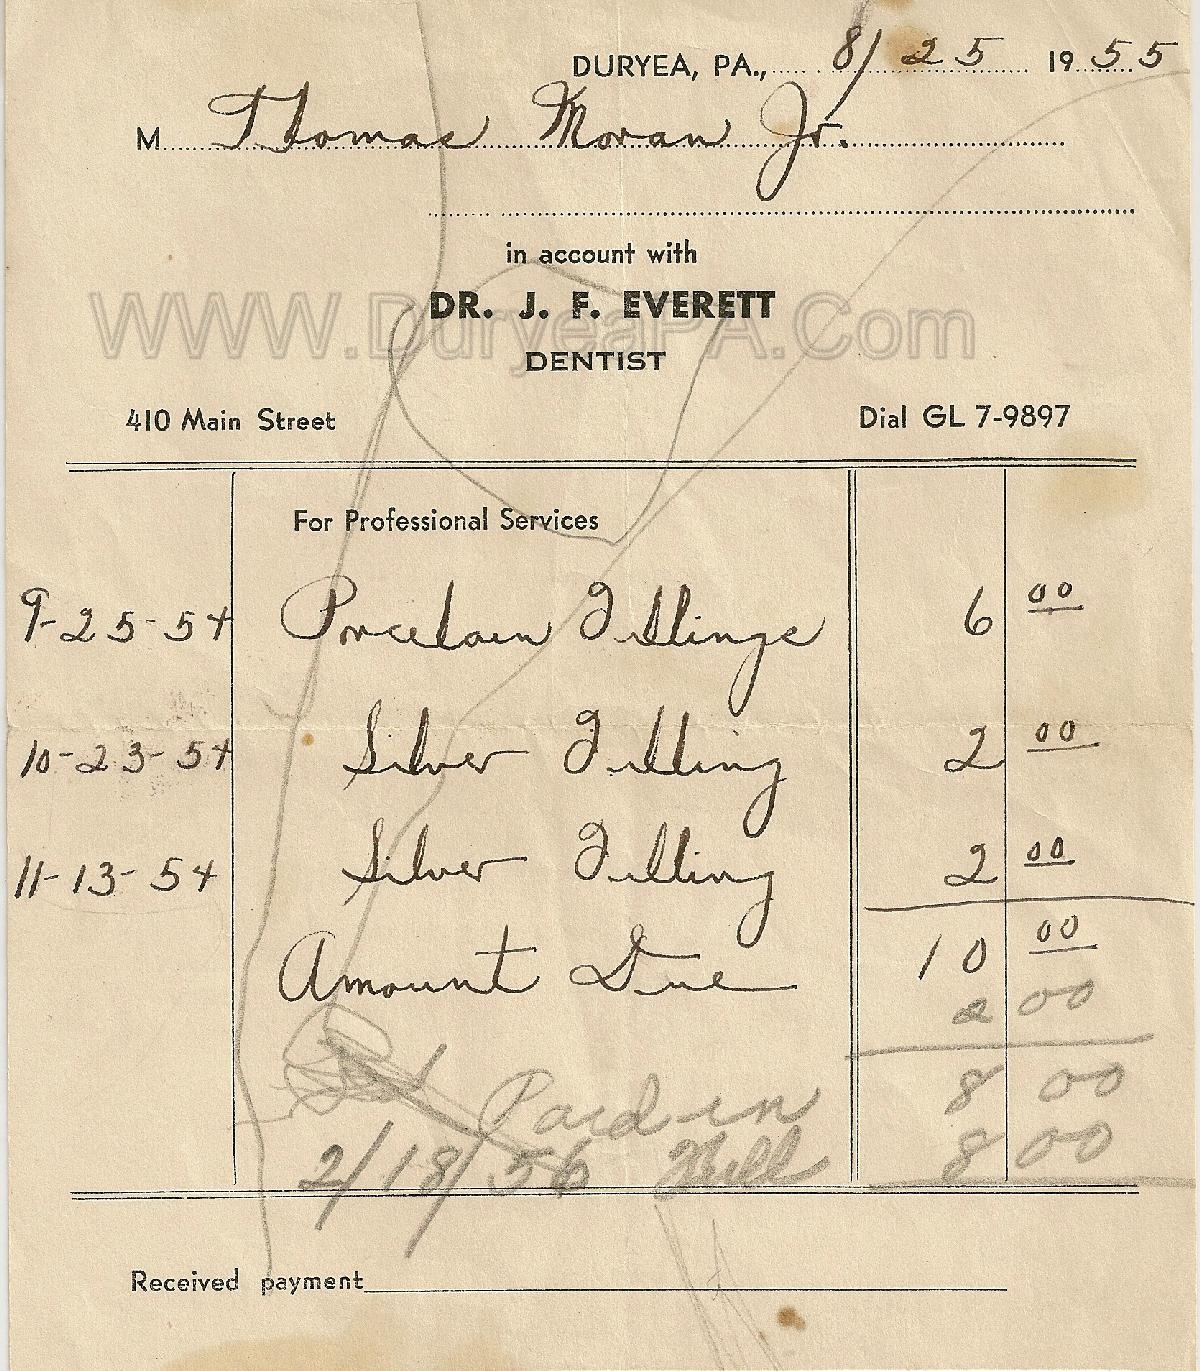 DURYEA, PA., 8/25 1955
M Thomas Moran Jr.
in account with
DR. J. F. EVERETT
WWW.DuryeaPA.Com
DENTIST
410 Main Street Dial GL 7-9897
For Professional Services
9-25-54 Porcelain Fillings 6 00
10-23-54 Silver Filling 2 00
11-13-54 Silver Filling 2 00
Amount Due 10 00
2 00
8 00
Paid in
2/18/56 Full 8 00
Received payment